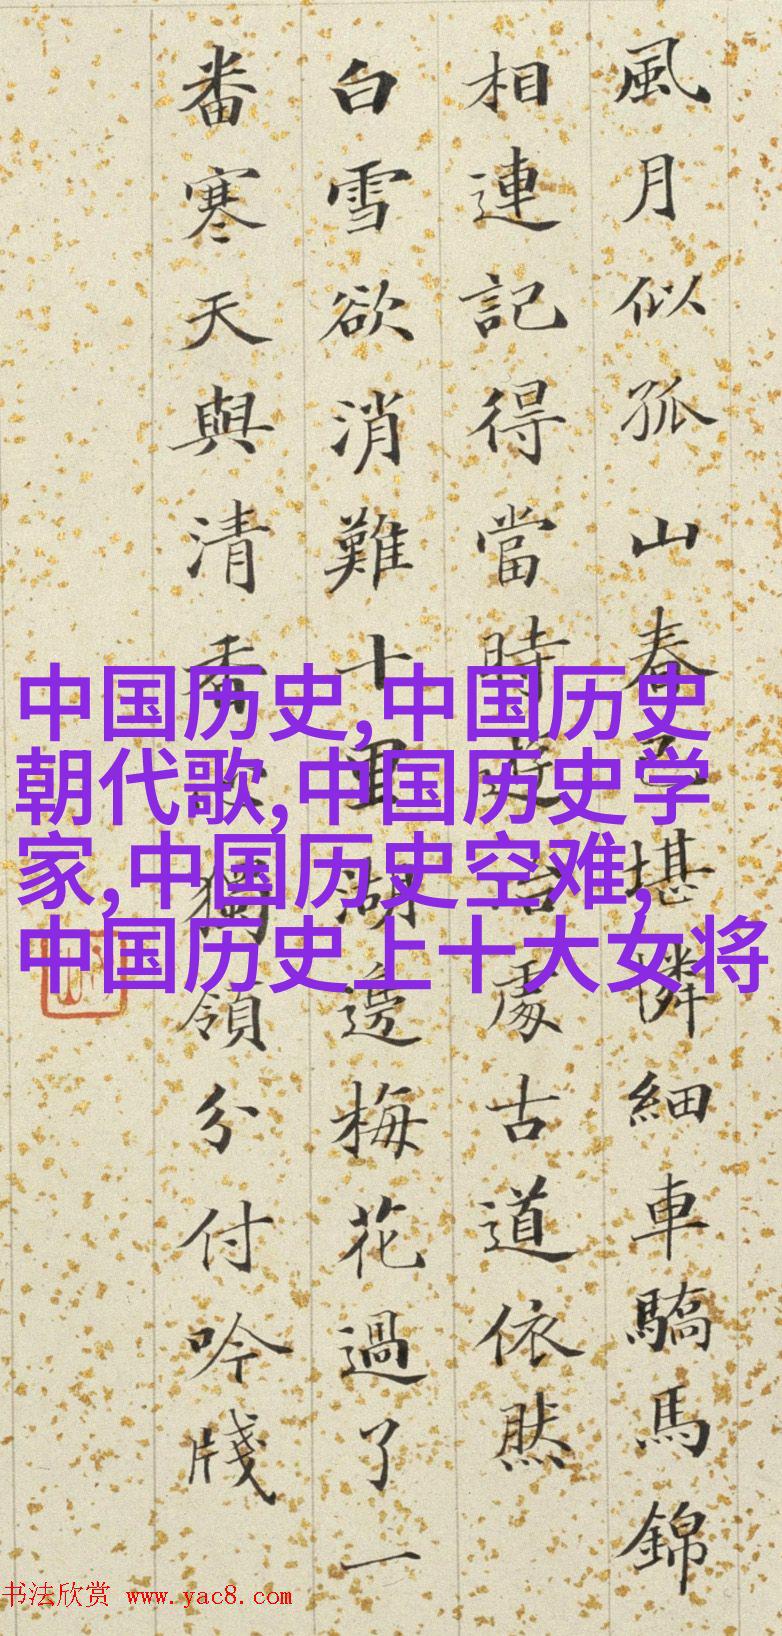 風月似孤山春色堪憐細車驕馬錦
相連記得當時遊冶處古道依然
白雪欲消難十里湖邊梅花過了一
番寒天與清香獨領分付吟牋
中国历史,中国历史
朝代歌,中国历史学
家,中国历史空难,
中国历史上十大女将
书法欣赏 www.yac8.com